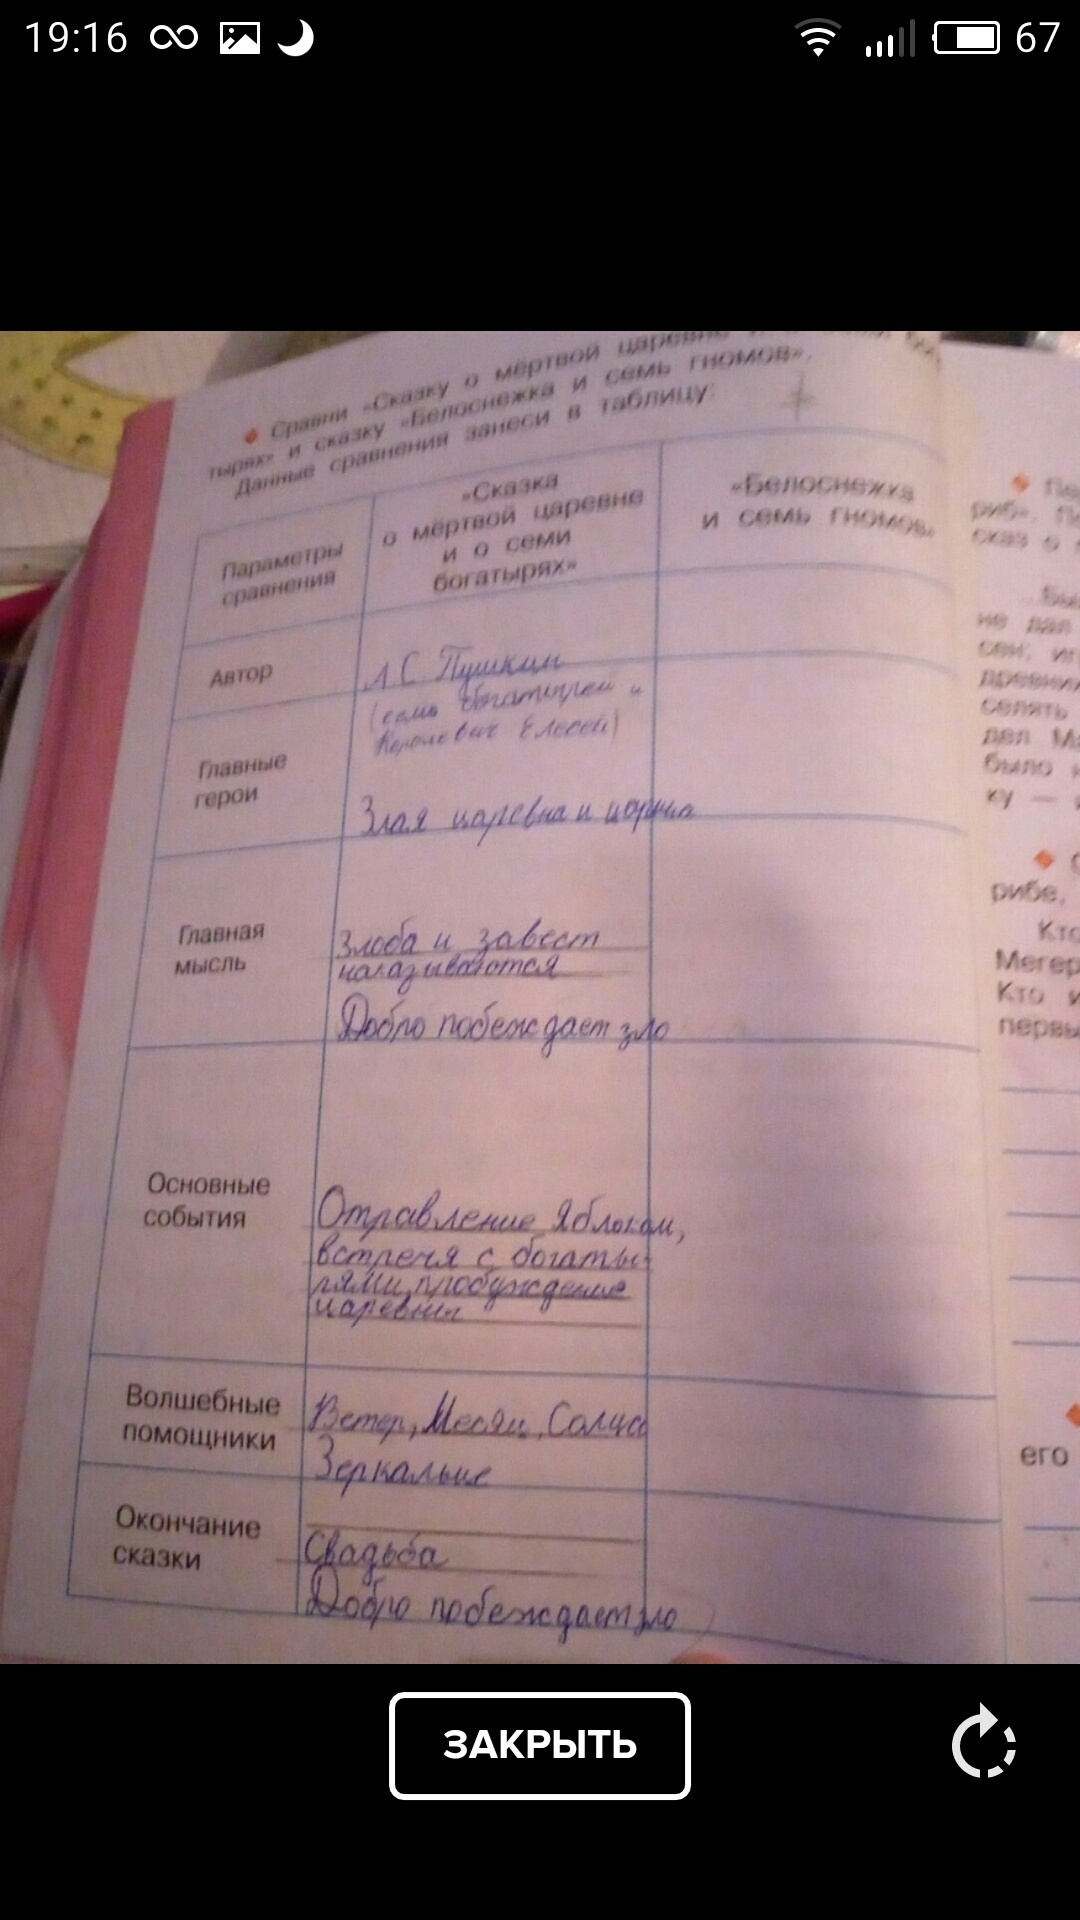 19:16
67
Сравни «Сказку о мёртвой царевне
тырях» и сказку «Белоснежка и семь гномов».
Данные сравнения занеси в таблицу:
Параметры
сравнения
«Сказка
о мёртвой царевне
и о семи
богатырях»
«Белоснежка
и семь гномов»
Автор
А.С. Пушкин
Главные
герои
(семь богатырей и
Королевич Елесей)
Злая царевна и царица
Главная
мысль
Злоба и завест
наказываются
Добро побеждает зло
Основные
события
Отравление Яблоком,
встречя с богаты-
рями, пробуждение
царевны
Волшебные
помощники
Ветер, Месяц, Солнце
Зеркальце
Окончание
сказки
Свадьба
Добро побеждает зло
риб». П
сказ о
не дал
сен; и
древни
селять
дел М
было
ку —
рибе,
Кто
Мегер
Кто и
первы
его
ЗАКРЫТЬ